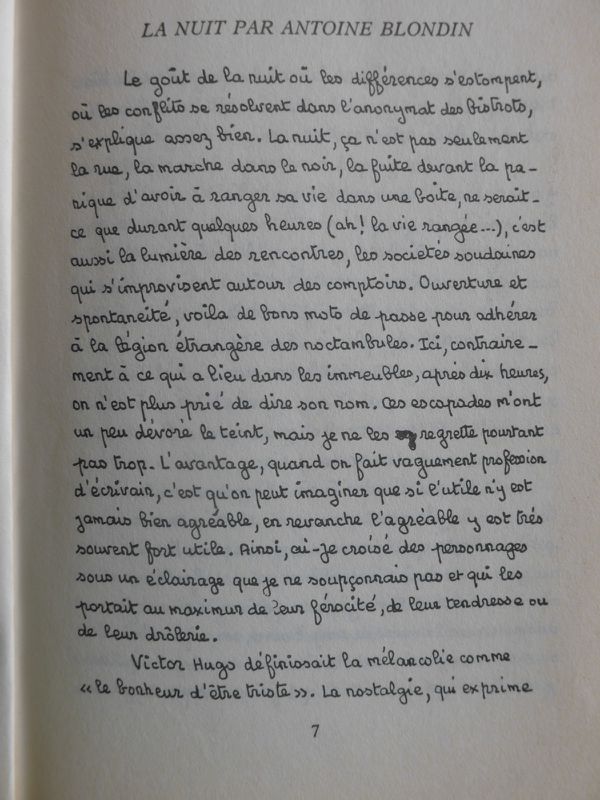 LA NUIT PAR ANTOINE BLONDIN
Le goût de la nuit où les différences s'estompent,
où les conflits se résolvent dans l'anonymat des bistrots,
s'explique assez bien. La nuit, ça n'est pas seulement
la rue, la marche dans le noir, la fuite devant la pa-
nique d'avoir à ranger sa vie dans une boîte, ne serait-
ce que durant quelques heures (ah! la vie rangée...), c'est
aussi la lumière des rencontres, les sociétés soudaines
qui s'improvisent autour des comptoirs. Ouverture et
spontanéité, voilà de bons mots de passe pour adhérer
à la légion étrangère des noctambules. Ici, contraire-
ment à ce qui a lieu dans les immeubles, après dix heures,
on n'est plus prié de dire son nom. Ces escapades m'ont
un peu dévoré le teint, mais je ne les regrette pourtant
pas trop. L'avantage, quand on fait vaguement profession
d'écrivain, c'est qu'on peut imaginer que si l'utile n'y est
jamais bien agréable, en revanche l'agréable y est très
souvent fort utile. Ainsi, ai-je croisé des personnages
sous un éclairage que je ne soupçonnais pas et qui les
portait au maximum de leur férocité, de leur tendresse ou
de leur drôlerie.
Victor Hugo définissait la mélancolie comme
« le bonheur d'être triste ». La nostalgie, qui exprime
7